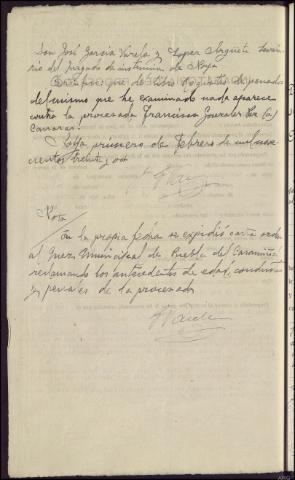 Don José García Varela y Lopez Argueta Secreta
rio del juzgado de instrucción de Noya
Certifico: que del libro Registro de penados
del mismo que he examinado nada aparece
contra la procesada Francisca
Noya primero de Febrero de mil nove
cientos treinta y
Nota
En la propia fecha se expidió carta orden
al Juez Municipal de Puebla del Caramiñal
reclamando los antecedentes de edad, conducta
y penales de la procesada